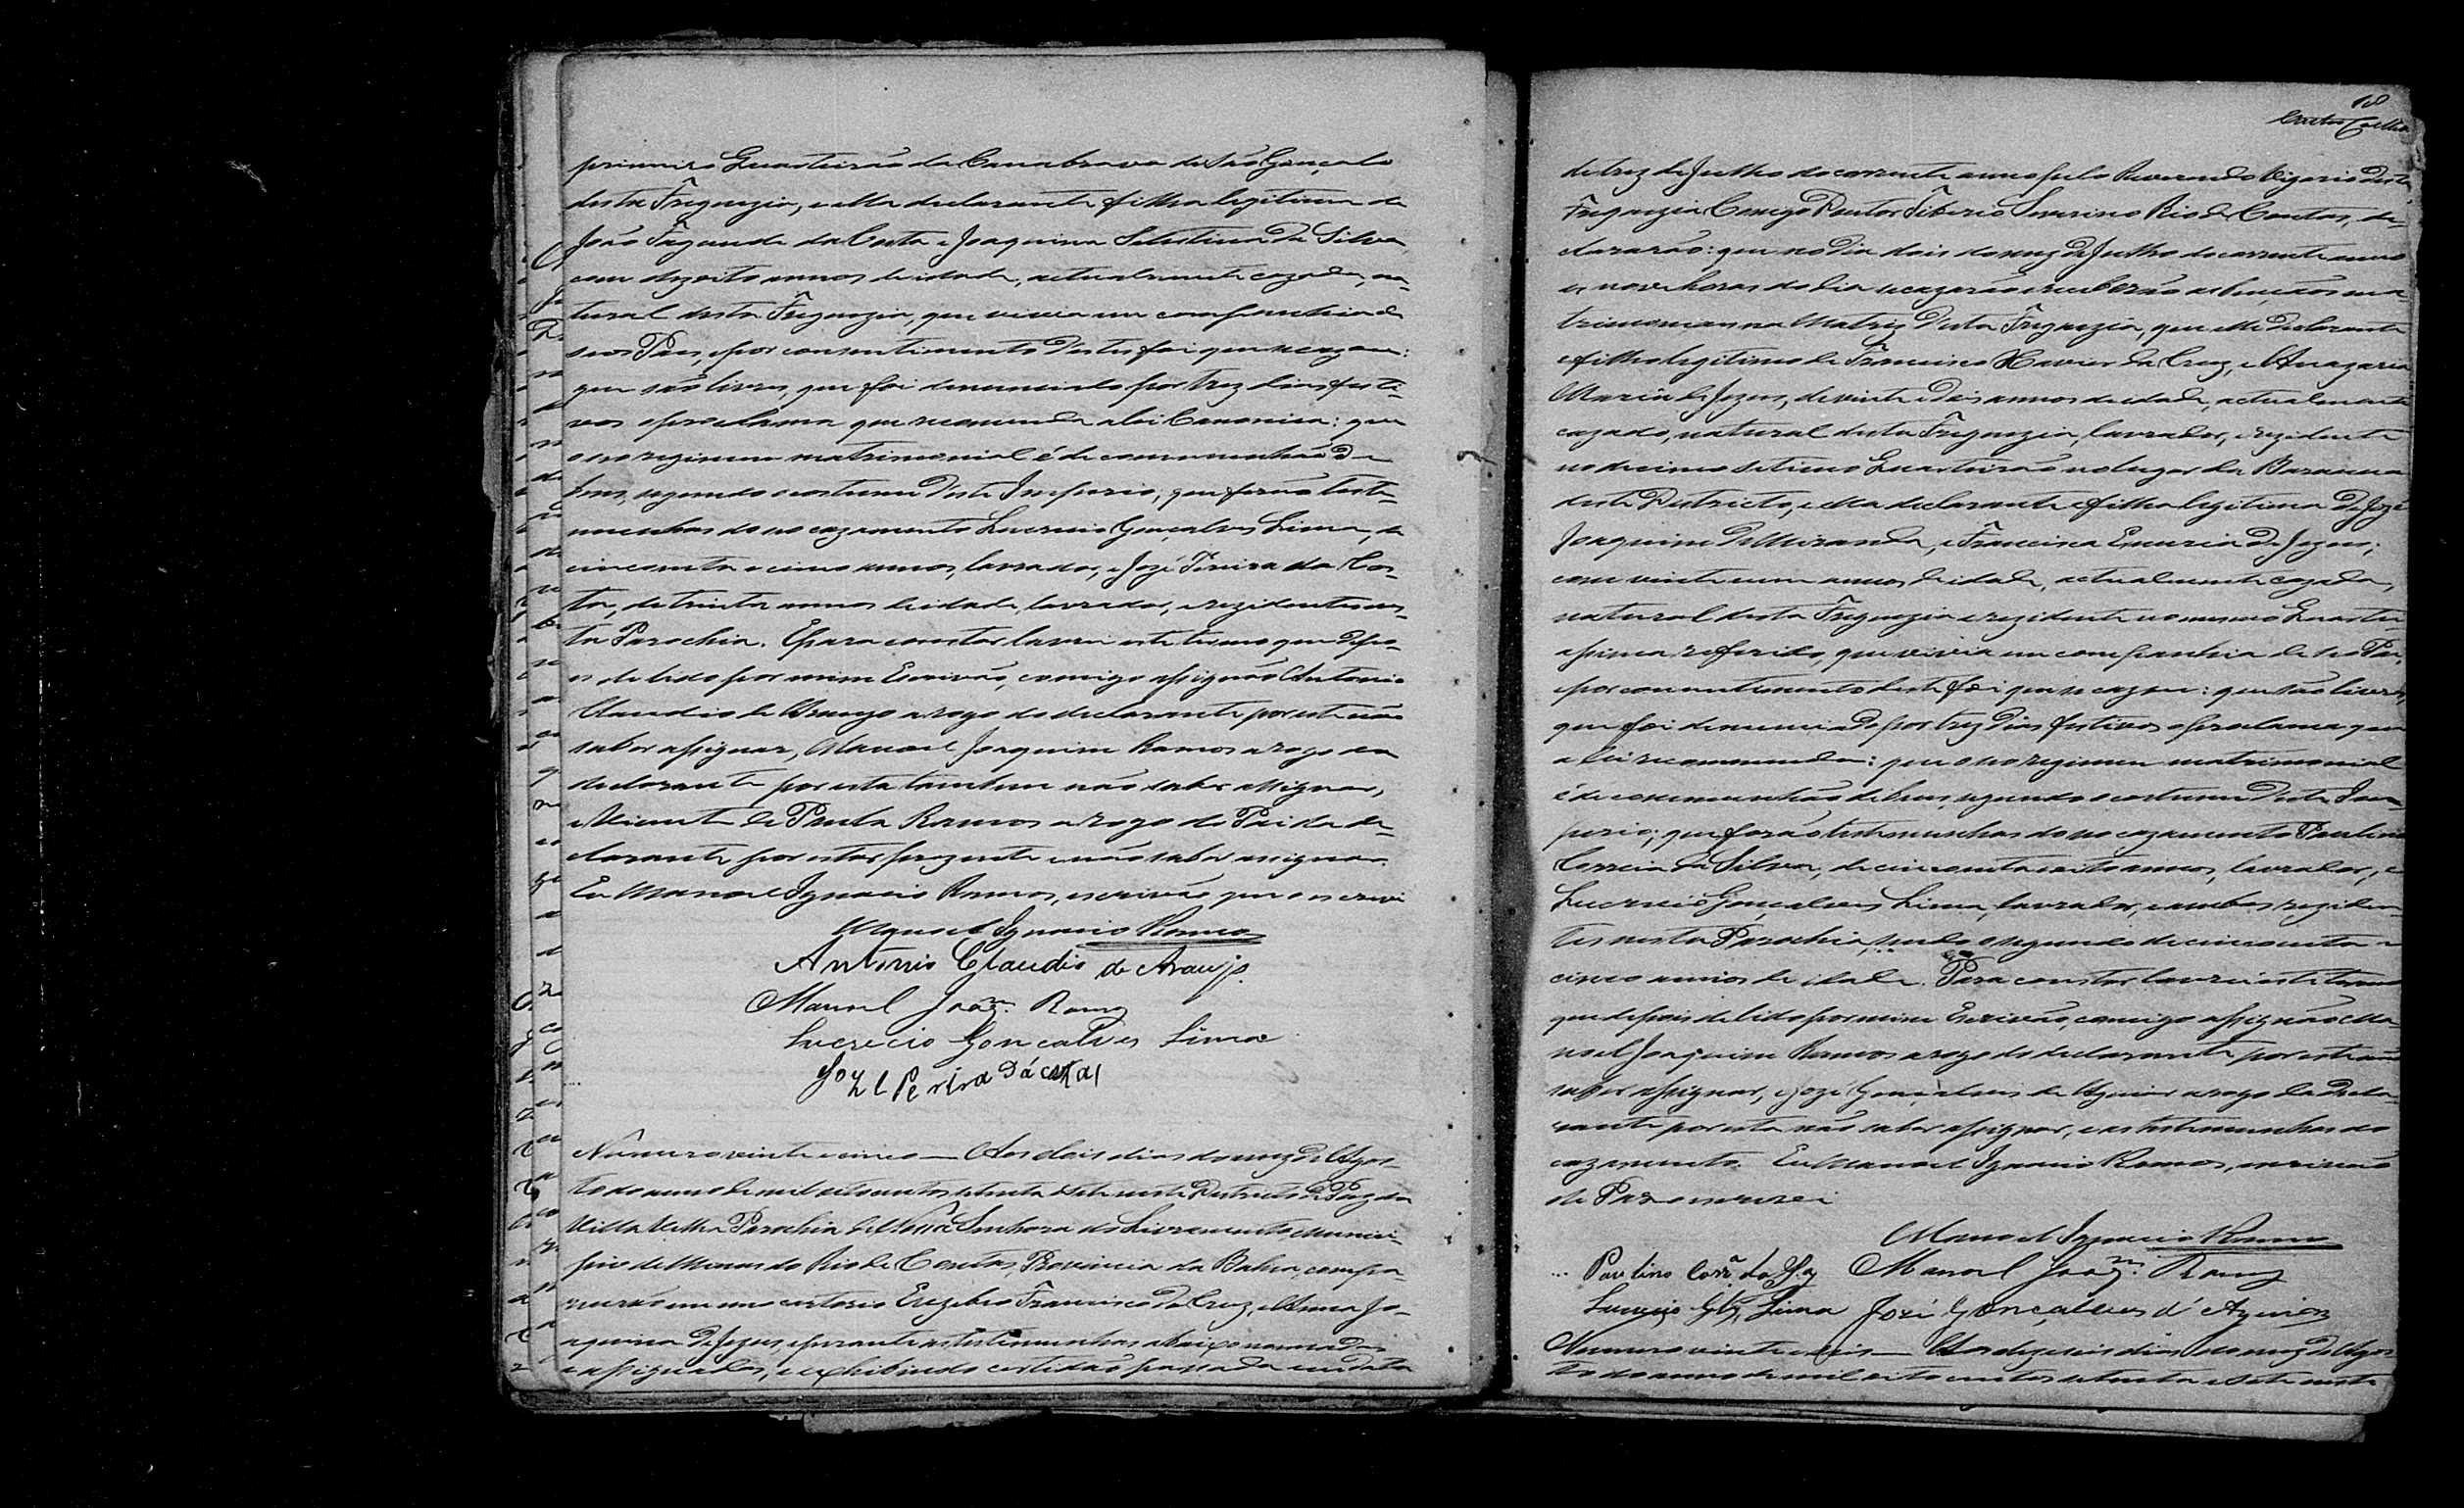 primeiro Quarteirão da Canabrava de São Gonçalo
desta Freguezia, e ella declarante filha legitima de
João Fagundes da Costa e Joaquina Silistina da Silva
com dezoito annos de idade, actualmente cazada, na-
tural desta Freguezia, que vivia em companhia de
seos Pais, e por consentimento destes foi que se cazou:
que são livres, que foi denunciado por trez dias festi-
vos e proclama que recomenda a lei Canonica: que
o seo regimem matrimonial é de communhão de
bens, segundo o costume deste Imperio, que forão teste-
munhas do seo cazamento Lucrecio Gonçalves Lima, de
cincoenta e cinco annos, lavrador, e Jozé Pereira da Cos-
ta, de trinta annos de idade, lavrador, e rezidentes nes-
ta Parochia. E para constar lavrei este termo que depo-
is de lido por mim Escrivão, comigo assignão Antonio
Claudio de Araujo a rogo do declarante por este não
saber assignar, Manoel Joaquim Ramos a rogo da
declarante por esta tambem não saber assignar,
e Vicente de Paula Ramos a rogo do Pai da de-
clarante por estar prezente e não saber assignar.
Eu Manoel Ignacio Ramos, escrivão que o escrevi
Manoel Ignacio Ramos
Antonio Claudio de Araujo.
Manoel Joaqm. Ramos
Lucrecio Gonçalves Lima
Joze Perira dá costa
Número vinte e cinco — Aos dois dias do mez de Agos-
to do anno de mil oitocentos setenta e sete neste Districto de Paz da
Villa Velha Parochia de Nossa Senhora do Livramento munici-
pio de Minas do Rio de Contas, Provincia da Bahia, compa-
recerão em meo cartorio Euzebio Francisco da Cruz, e Anna Jo-
aquina de Jezus, e perante as testemunhas abaixo nomeadas
e assignadas, e exhibindo certidão passada em data
18
Coelho
de trez de Julho do corrente anno pelo Reverendo Vigario desta
Freguezia Conego Doutor Tiberio Severino Rio de Contas, de-
clararão: que no dia dois do mez de Julho do corrente anno
as nove horas do dia se cazarão e receberão as bençãos ma
trimoniaes na Matriz desta Freguezia, que elle declarante
é filho legitimo de Francisco Xavier da Cruz, e
Maria de Jezus, de vinte e dois annos de idade, actualmente
cazado, natural desta Freguezia, lavrador, e rezidente
no decimo setimo Quarteirão no lugar da Barauna
deste Districto, e ella declarante é filha legitima de Jozé
Joaquim de Miranda, e Francisca de Jezus,
com vinte e um annos de idade, actualmente cazada,
natural desta Freguezia e rezidente no mesmo Quartei
assima referido, que vivia em companhia de seo Pai,
e por consentimento deste foi que se cazou: que são livres,
que foi denunciado por trez dias festivos e proclama que
a lei recommenda: que o seo regimem matrimonial
é de communhão de bens, segundo o costume deste Im-
perio; que forão testemunhas do seo cazamento Paulino
Correia da Silva, de cincoenta e oito annos, lavrador, e
Lucrecio Gonçalves Lima, lavrador, e ambos reziden-
tes nesta Parochia, sendo o segundo de cincoenta e
cinco annos de idade. E Para constar lavrei este termo
que depois de lido por mim Escrivão, comigo assignão Ma-
noel Joaquim Ramos a rogo do declarante por este não
saber assignar, e Jozé Gonçalves de Aguiar a rogo da decla-
rante por esta não saber assignar, e as testemunhas do
cazamento. Eu Manoel Ignacio Ramos, escrivão
de Paz o escrevi
Manoel Ignacio Ramos
Paulino Corra. da Sa. Manoel Joaqm. Ramos
Lucrecio Glz Lima José Gonçalves d' Aguiar
Numero vinte e seis — Aos dezeseis dias do mez de Agos-
to do anno de mil oito centos setenta e sete neste